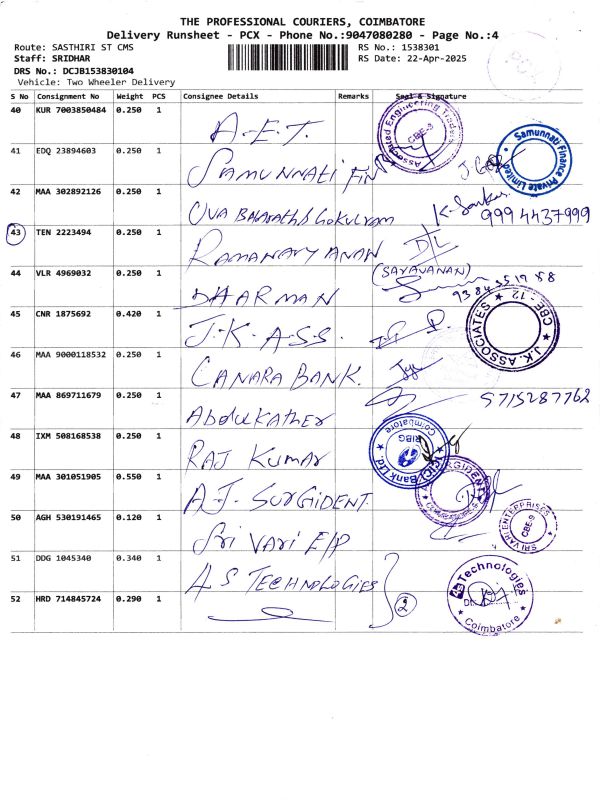 THE PROFESSIONAL COURIERS, COIMBATORE
Delivery Runsheet - PCX - Phone No.:9047080280 - Page No.:4
Route: SASTHIRI ST CMS
RS No.: 1538301
Staff: SRIDHAR
RS Date: 22-Apr-2025
DRS No.: DCJB153830104
Vehicle: Two Wheeler Delivery
S No Consignment No Weight PCS Consignee Details Remarks Seal & Signature
40 KUR 7003850484 0.250 1 A-E.T.
Associated Engineering Traders CBE-9
41 EDQ 23894603 0.250 1 SAMUNNATI FIN
Samunnati Finance Private Limited
42 MAA 302892126 0.250 1 UVA Bharathi Gokulram K-Sankar
999 4437999
43 TEN 2223494 0.250 1 RAMANARY ANAN D/L
(SARAVANAN)
44 VLR 4969032 0.250 1 DHARMAN 9384351958
45 CNR 1875692 0.420 1 J-K-A-S-S.
J.K. ASSOCIATES CBE-12
46 MAA 9000118532 0.250 1 CANARA BANK.
47 MAA 869711679 0.250 1 Abdulkather 9715287762
48 IXM 508168538 0.250 1 RAJ KUMAR
ICICI Bank Ltd RIBG Coimbatore
49 MAA 301051905 0.550 1 A.J. SURGIDENT.
50 AGH 530191465 0.120 1 Sri Vari E/P
SRI VARI ENTERPRISES CBE-9
51 DDG 1045340 0.340 1 4S TECHNOLOGIES
52 HRD 714845724 0.290 1 2
4S Technologies Coimbatore